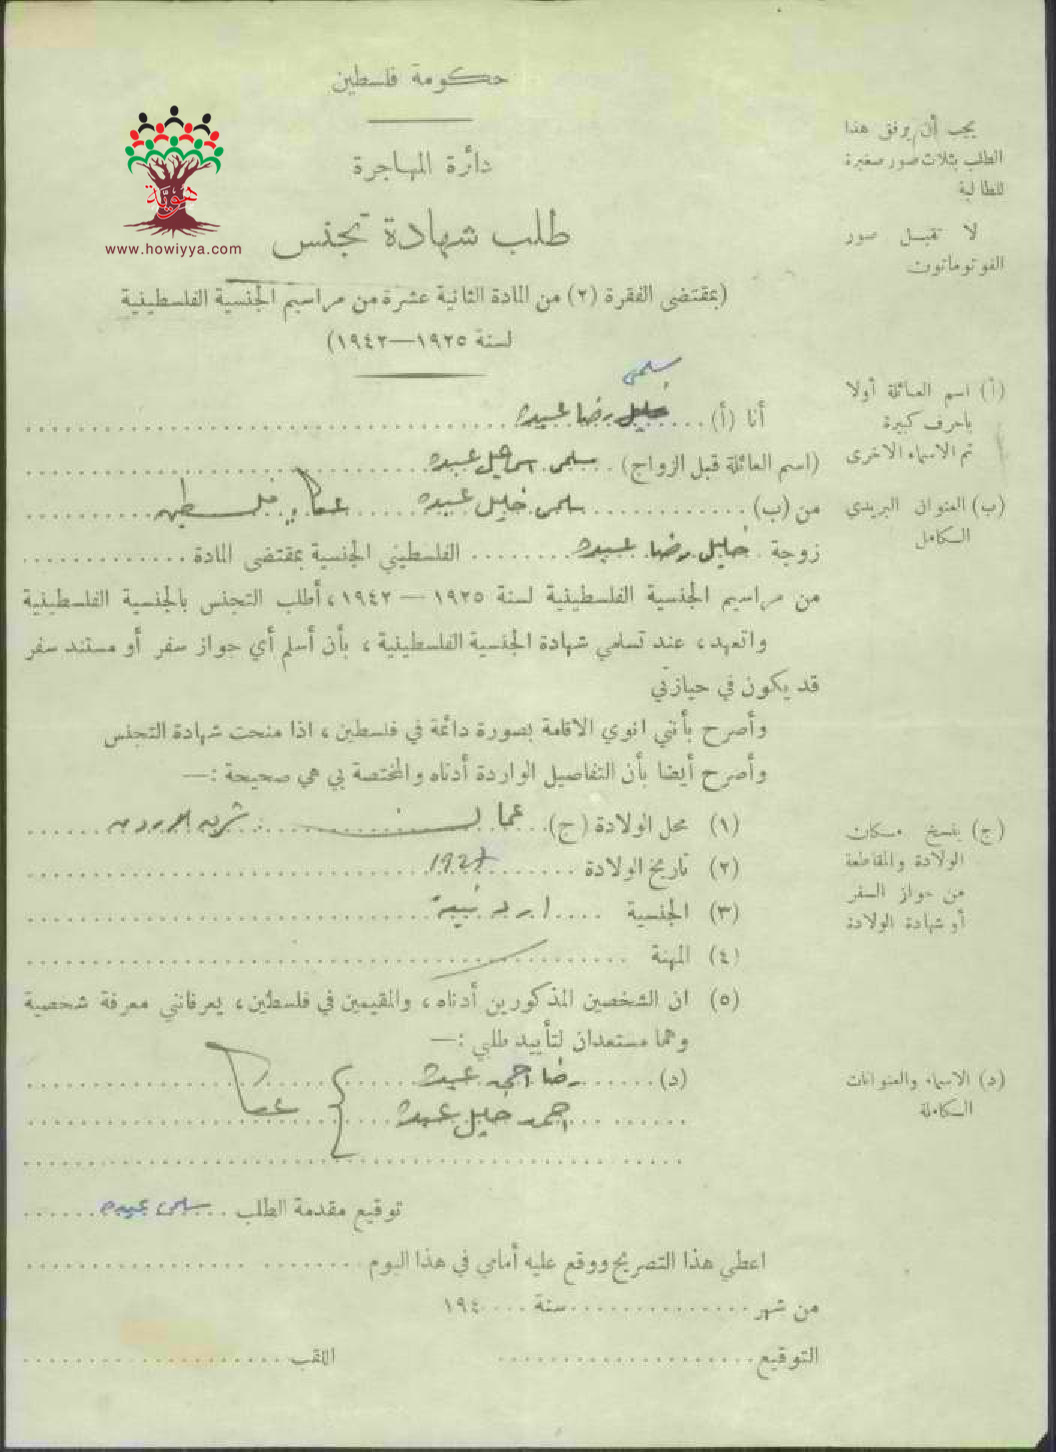 حكومة فلسطين
هوية
www.howiyya.com
دائرة المهاجرة
طلب شهادة تجنس
(بمقتضى الفقرة (٢) من المادة الثانية عشرة من مراسيم الجنسية الفلسطينية
لسنة ١٩٢٥—١٩٤٢)
يجب أن يرفق هذا
الطلب بثلاث صور صغيرة
للطالبة
لا تقبل صور
الفوتوماتون
سلمى
أنا (أ) خليل رضا عبده
(اسم العائلة قبل الزواج) سلمى اسماعيل عبده
من (ب) سلمى خليل عبده عكا فلسطين
زوجة خليل رضا عبده الفلسطيني الجنسية بمقتضى المادة
من مراسيم الجنسية الفلسطينية لسنة ١٩٢٥ — ١٩٤٢، أطلب التجنس بالجنسية الفلسطينية
واتعهد، عند تسلمي شهادة الجنسية الفلسطينية، بأن أسلم أي جواز سفر أو مستند سفر
قد يكون في حيازتي
وأصرح بأنني انوي الاقامة بصورة دائمة في فلسطين، اذا منحت شهادة التجنس
وأصرح أيضا بأن التفاصيل الواردة أدناه والمختصة بي هي صحيحة :—
(١) محل الولادة (ج) عمان شرق الاردن
(٢) تاريخ الولادة
(٣) الجنسية اردنية
(٤) المهنة
(٥) ان الشخصين المذكورين أدناه، والمقيمين في فلسطين، يعرفانني معرفة شخصية
وهما مستعدان لتأييد طلبي :—
(د) رضا احمد عبده
احمد خليل عبده } عكا
توقيع مقدمة الطلب سلمى عبده
اعطي هذا التصريح ووقع عليه أمامي في هذا اليوم
من شهر سنة ١٩٤٠
التوقيع اللقب
(أ) اسم العائلة أولا
باحرف كبيرة
ثم الاسماء الاخرى
(ب) العنوان البريدي
الكامل
(ج) ينسخ مكان
الولادة والمقاطعة
من جواز السفر
أو شهادة الولادة
(د) الاسماء والعنوانات
الكاملة